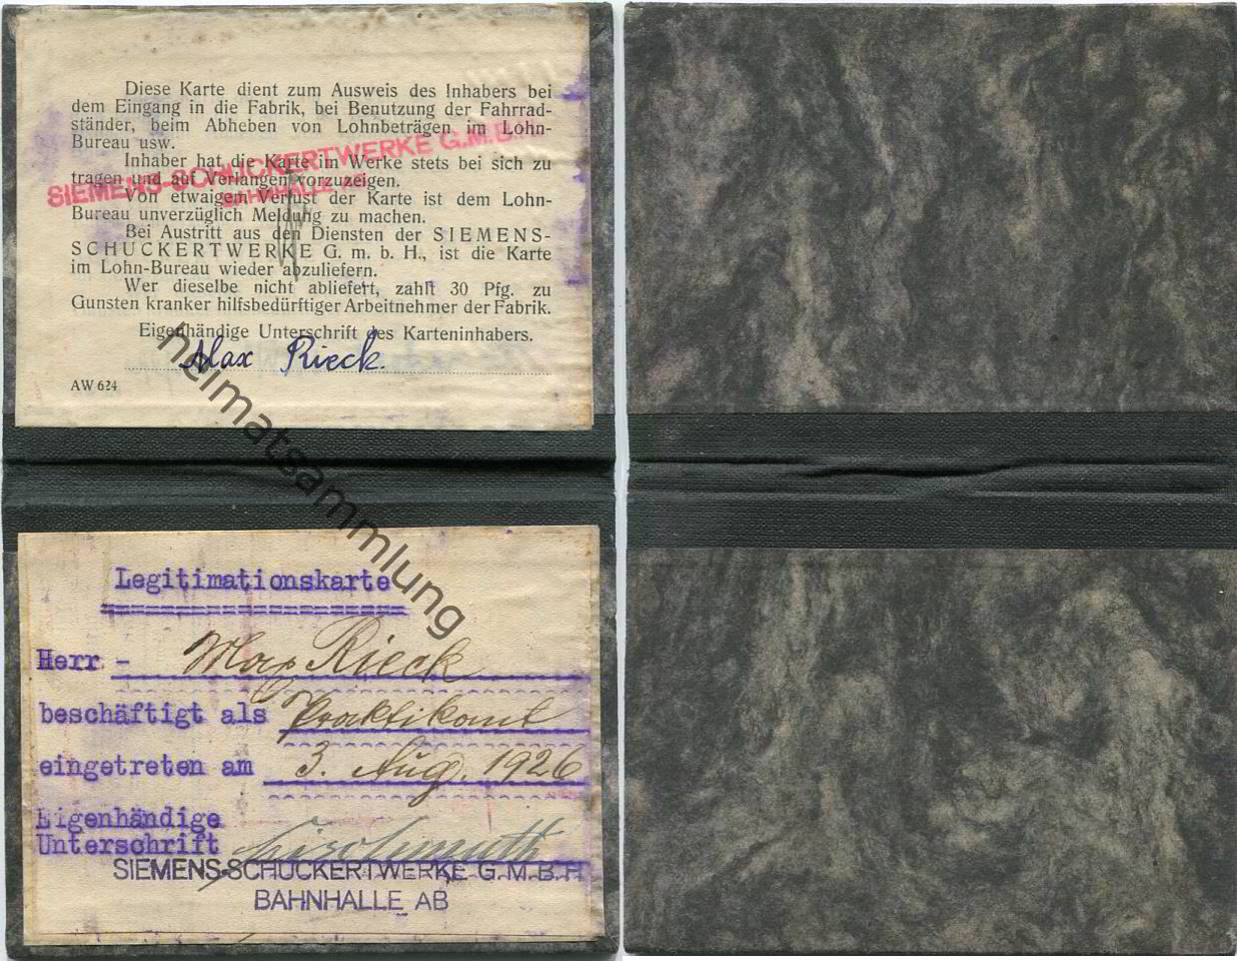 Diese Karte dient zum Ausweis des Inhabers bei
dem Eingang in die Fabrik, bei Benutzung der Fahrrad-
ständer, beim Abheben von Lohnbeträgen im Lohn-
Bureau usw.
Inhaber hat die Karte im Werke stets bei sich zu
tragen und auf Verlangen vorzuzeigen.
Von etwaigem Verlust der Karte ist dem Lohn-
Bureau unverzüglich Meldung zu machen.
Bei Austritt aus den Diensten der SIEMENS-
SCHUCKERTWERKE G. m. b. H., ist die Karte
im Lohn-Bureau wieder abzuliefern.
Wer dieselbe nicht abliefert, zahlt 30 Pfg. zu
Gunsten kranker hilfsbedürftiger Arbeitnehmer der Fabrik.
Eigenhändige Unterschrift des Karteninhabers.
Max Rieck.
AW 624
SIEMENS-SCHUCKERTWERKE G.M.B.H.
heimatsammlung
Legitimationskarte
Herr - Max Rieck
beschäftigt als Praktikant
eingetreten am 3. Aug. 1926
Eigenhändige
Unterschrift
SIEMENS-SCHUCKERTWERKE G.M.B.H
BAHNHALLE AB